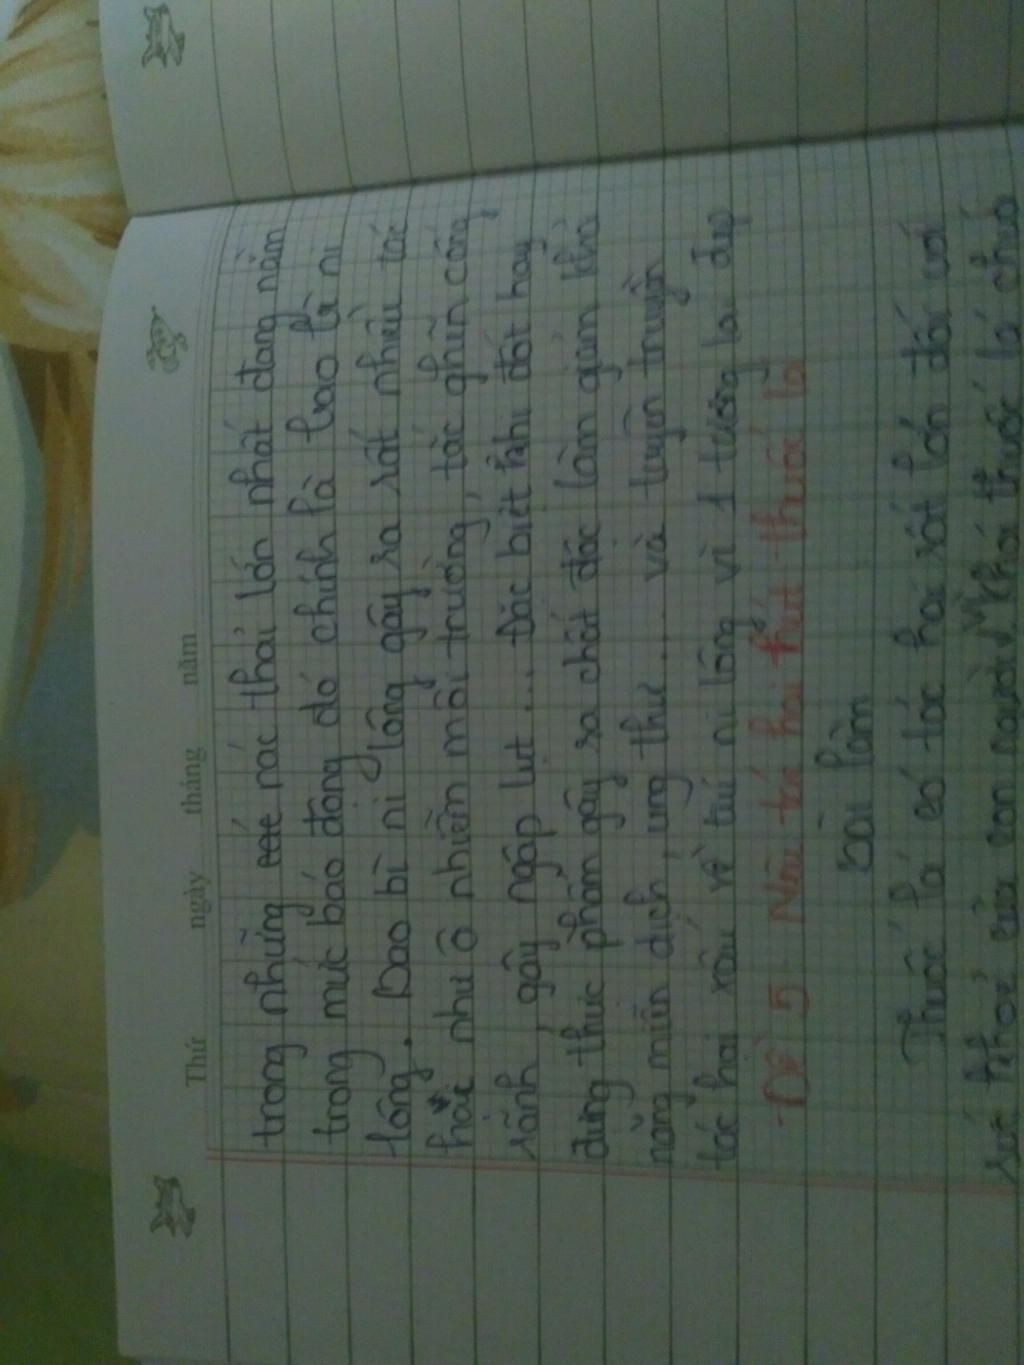 Thứ ngày tháng năm
trong những các rác thải lớn nhất đang nằm
trong mức báo động đó chính là bao bì ni
lông. Bao bì ni lông gây ra rất nhiều tác
hại như ô nhiễm môi trường, tắc ghĩn cống,
rãnh, gây ngập lụt... Đặc biệt khi đốt hay
đựng thực phẩm gây ra chất độc làm giảm khả
năng miễn dịch, ung thư... và tuyên truyền
tác hại xấu về túi ni lông vì 1 tương lai đẹp
Đề 5: Nêu tác hại hút thuốc lá
Bài làm
Thuốc lá có tác hại rất lớn đối với
sức khỏe của con người. Vì khói thuốc lá chứa